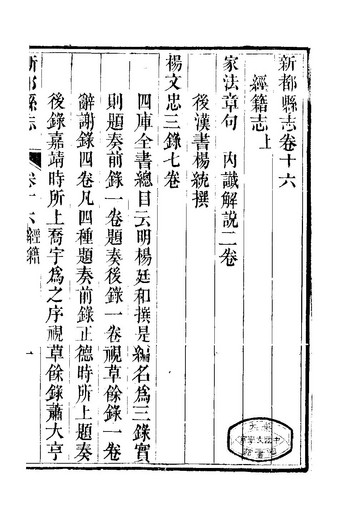 新都縣志卷十六
經籍志上
家法章句 內讖解説二卷
後漢書楊統撰
楊文忠三錄七卷
四庫全書總目云明楊廷和撰是編名爲三錄實
則題奏前錄一卷題奏後錄一卷視草餘錄一卷
辭謝錄四卷凡四種題奏前錄正德時所上題奏
後錄嘉靖時所上喬宇爲之序視草餘錄蕭大亨
新都縣志
卷十六 經籍
一